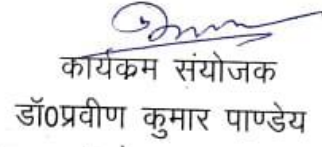 कार्यकम संयोजक
डॉ0प्रवीण कुमार पाण्डेय